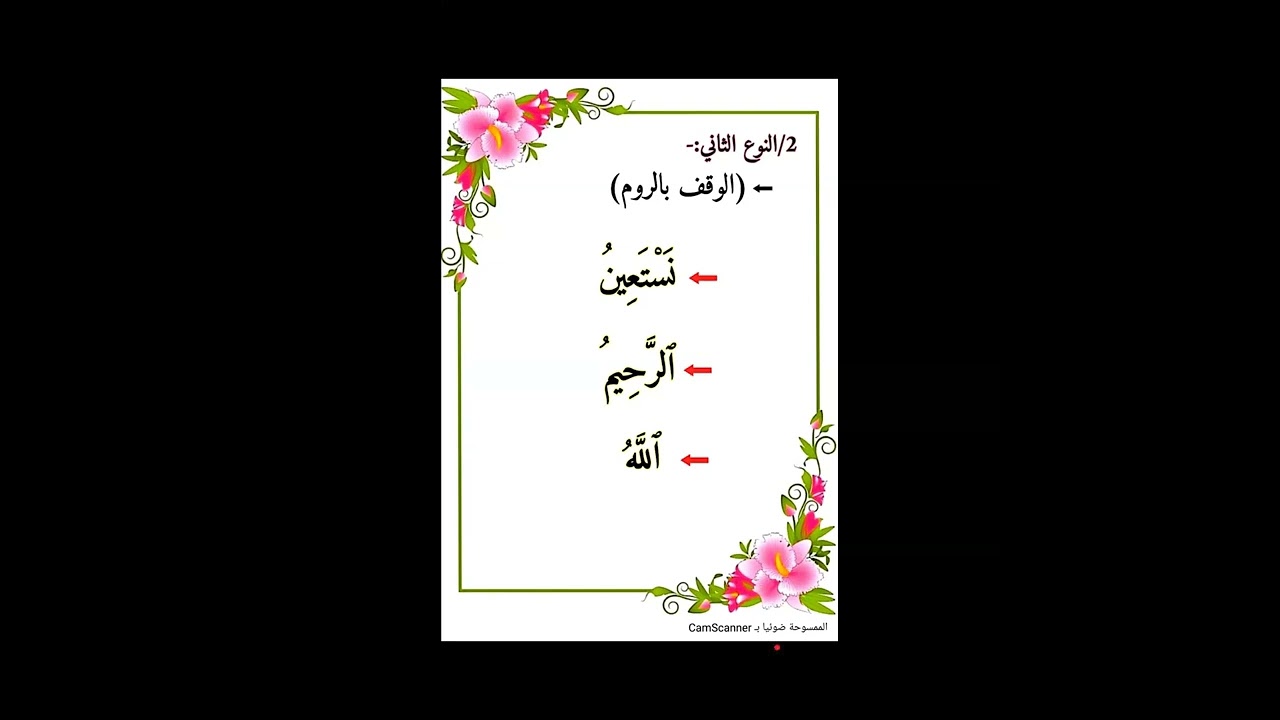 2/النوع الثاني:-
(الوقف بالروم)
نَسْتَعِينُ
ٱلرَّحِيمُ
ٱللَّهُ
الممسوحة ضوئيا بـ CamScanner